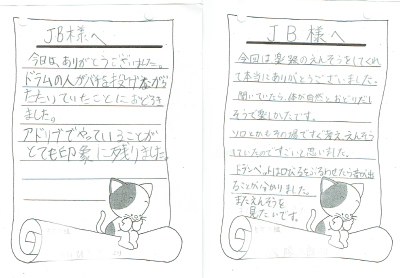 JB様へ
今日は、ありがとうございました。
ドラムの人がバチを投げながら
たたいていたことにおどろき
ました。
アドリブでやっていることが
とても印象に残りました。
JB様へ
今回は楽器のえんそうをしてくれ
て本当にありがとうございました。
聞いていたら、体が自然とおどりだし
そうで楽しかったです。
ソロとかもその場ですぐ考ええんそう
していたのですごいと思いました。
トランペットは口びるをふるわせたら音が出
ることが分かりました。
またえんそうを
見たいです。